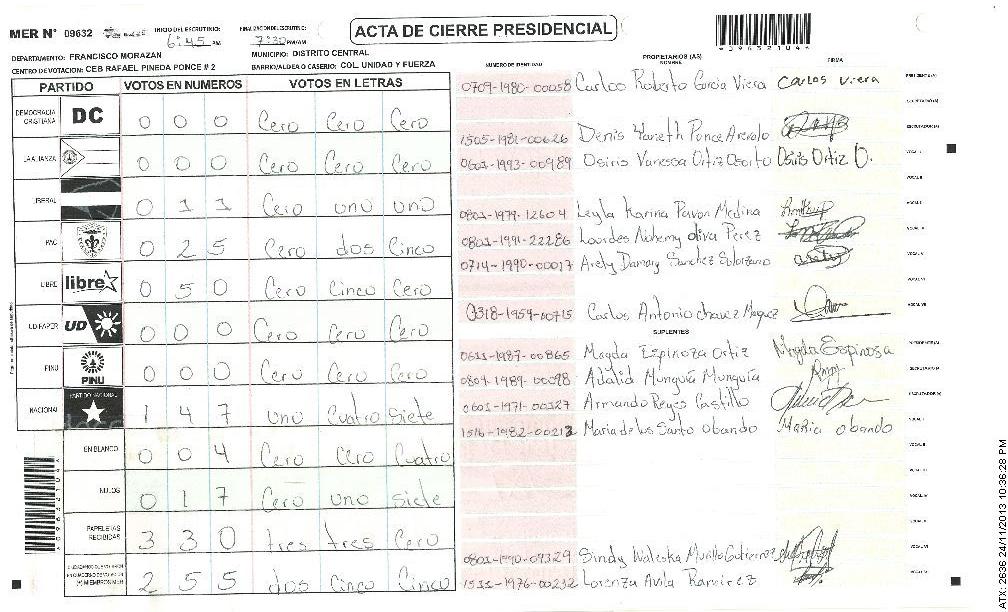 MER N° 09632
INICIO DEL ESCRUTINIO: 6:45 PM
FINALIZACION DEL ESCRUTINIO: 7:30 PM/AM
ACTA DE CIERRE PRESIDENCIAL
DEPARTAMENTO: FRANCISCO MORAZAN
MUNICIPIO: DISTRITO CENTRAL
CENTRO DE VOTACION: CEB RAFAEL PINEDA PONCE # 2
BARRIO/ALDEA O CASERIO: COL. UNIDAD Y FUERZA
PARTIDO VOTOS EN NUMEROS VOTOS EN LETRAS
DEMOCRACIA CRISTIANA DC 0 0 0 Cero Cero Cero
LA ALIANZA 0 0 0 Cero Cero Cero
LIBERAL 0 1 1 Cero uno uno
PAC 0 2 5 Cero dos Cinco
LIBRE libre 0 5 0 Cero Cinco Cero
UD/FAPER UD 0 0 0 Cero Cero Cero
PINU PINU 0 0 0 Cero Cero Cero
NACIONAL PARTIDO NACIONAL 1 4 7 uno Cuatro siete
EN BLANCO 0 0 4 Cero Cero Cuatro
NULOS 0 1 7 Cero uno siete
PAPELETAS RECIBIDAS 3 3 0 tres tres Cero
2 5 5 dos Cinco Cinco
NUMERO DE IDENTIDAD PROPIETARIOS (AS) NOMBRE FIRMA
0709-1980-00058 Carlos Roberto Garcia Viera Carlos Viera PRESIDENTE (A)
SECRETARIO (A)
1505-1981-00626 Denis Yaneth Ponce Arevalo ESCRUTADOR (A)
0601-1993-00989 Osiris Vanessa Ortiz Osorto Osiris Ortiz O. VOCAL I
VOCAL II
0801-1979-12604 Leyla Karina Pavon Medina VOCAL III
0801-1991-22286 Lourdes oliva Perez VOCAL IV
0714-1990-00017 Arely Damary Sanchez Solorzano VOCAL V
VOCAL VI
0318-1959-00715 Carlos Antonio chavez VOCAL VII
SUPLENTES
0611-1987-00865 Magda Espinoza Ortiz Magda Espinosa PRESIDENTE (A)
0801-1989-00098 Adalid Munguia Munguia SECRETARIO (A)
0601-1971-00327 Armando Reyes Castillo ESCRUTADOR (A)
1516-1982-00213 Maria de los Santo obando Maria obando VOCAL I
VOCAL II
VOCAL III
VOCAL IV
VOCAL V
0801-1990-09329 Sindy Waleska Murillo Gutierrez VOCAL VI
1511-1976-00232 Lorenza Avila Ramirez VOCAL VII
ATX: 2636 24/11/2013 10:36:28 PM